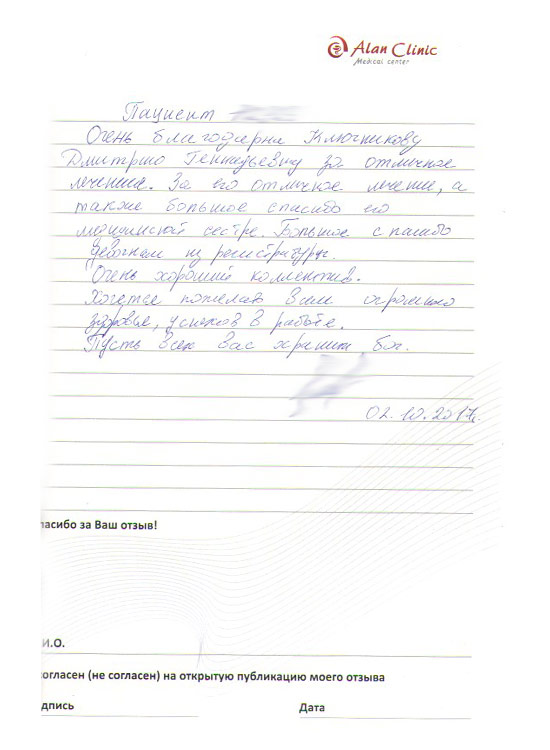 Alan Clinic
Medical center
Пациент
Очень благодарна Ключникову
Дмитрию Геннадьевичу за отличное
лечение. За его отличное лечение, а
также большое спасибо его
медицинской сестре. Большое спасибо
девочкам из регистратуры.
Очень хороший коллектив.
Хочется пожелать Вам огромного
здоровье, успехов в работе.
Пусть всех Вас хранит бог.
02.10.2017г.
пасибо за Ваш отзыв!
И.О.
огласен (не согласен) на открытую публикацию моего отзыва
дпись Дата